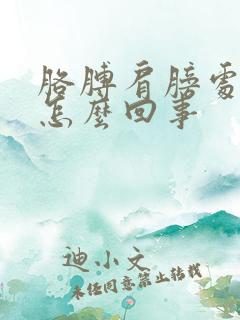 胳膊肩膀處
怎麼回事
迪小文
未任同意禁止转载